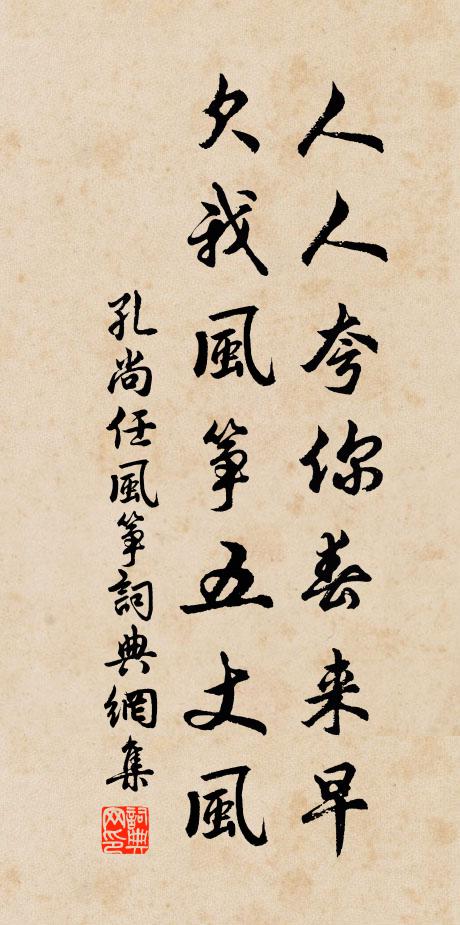 人人夸你春来早
欠我風箏五丈風
孔尚任風箏詞典網集
詞典網印